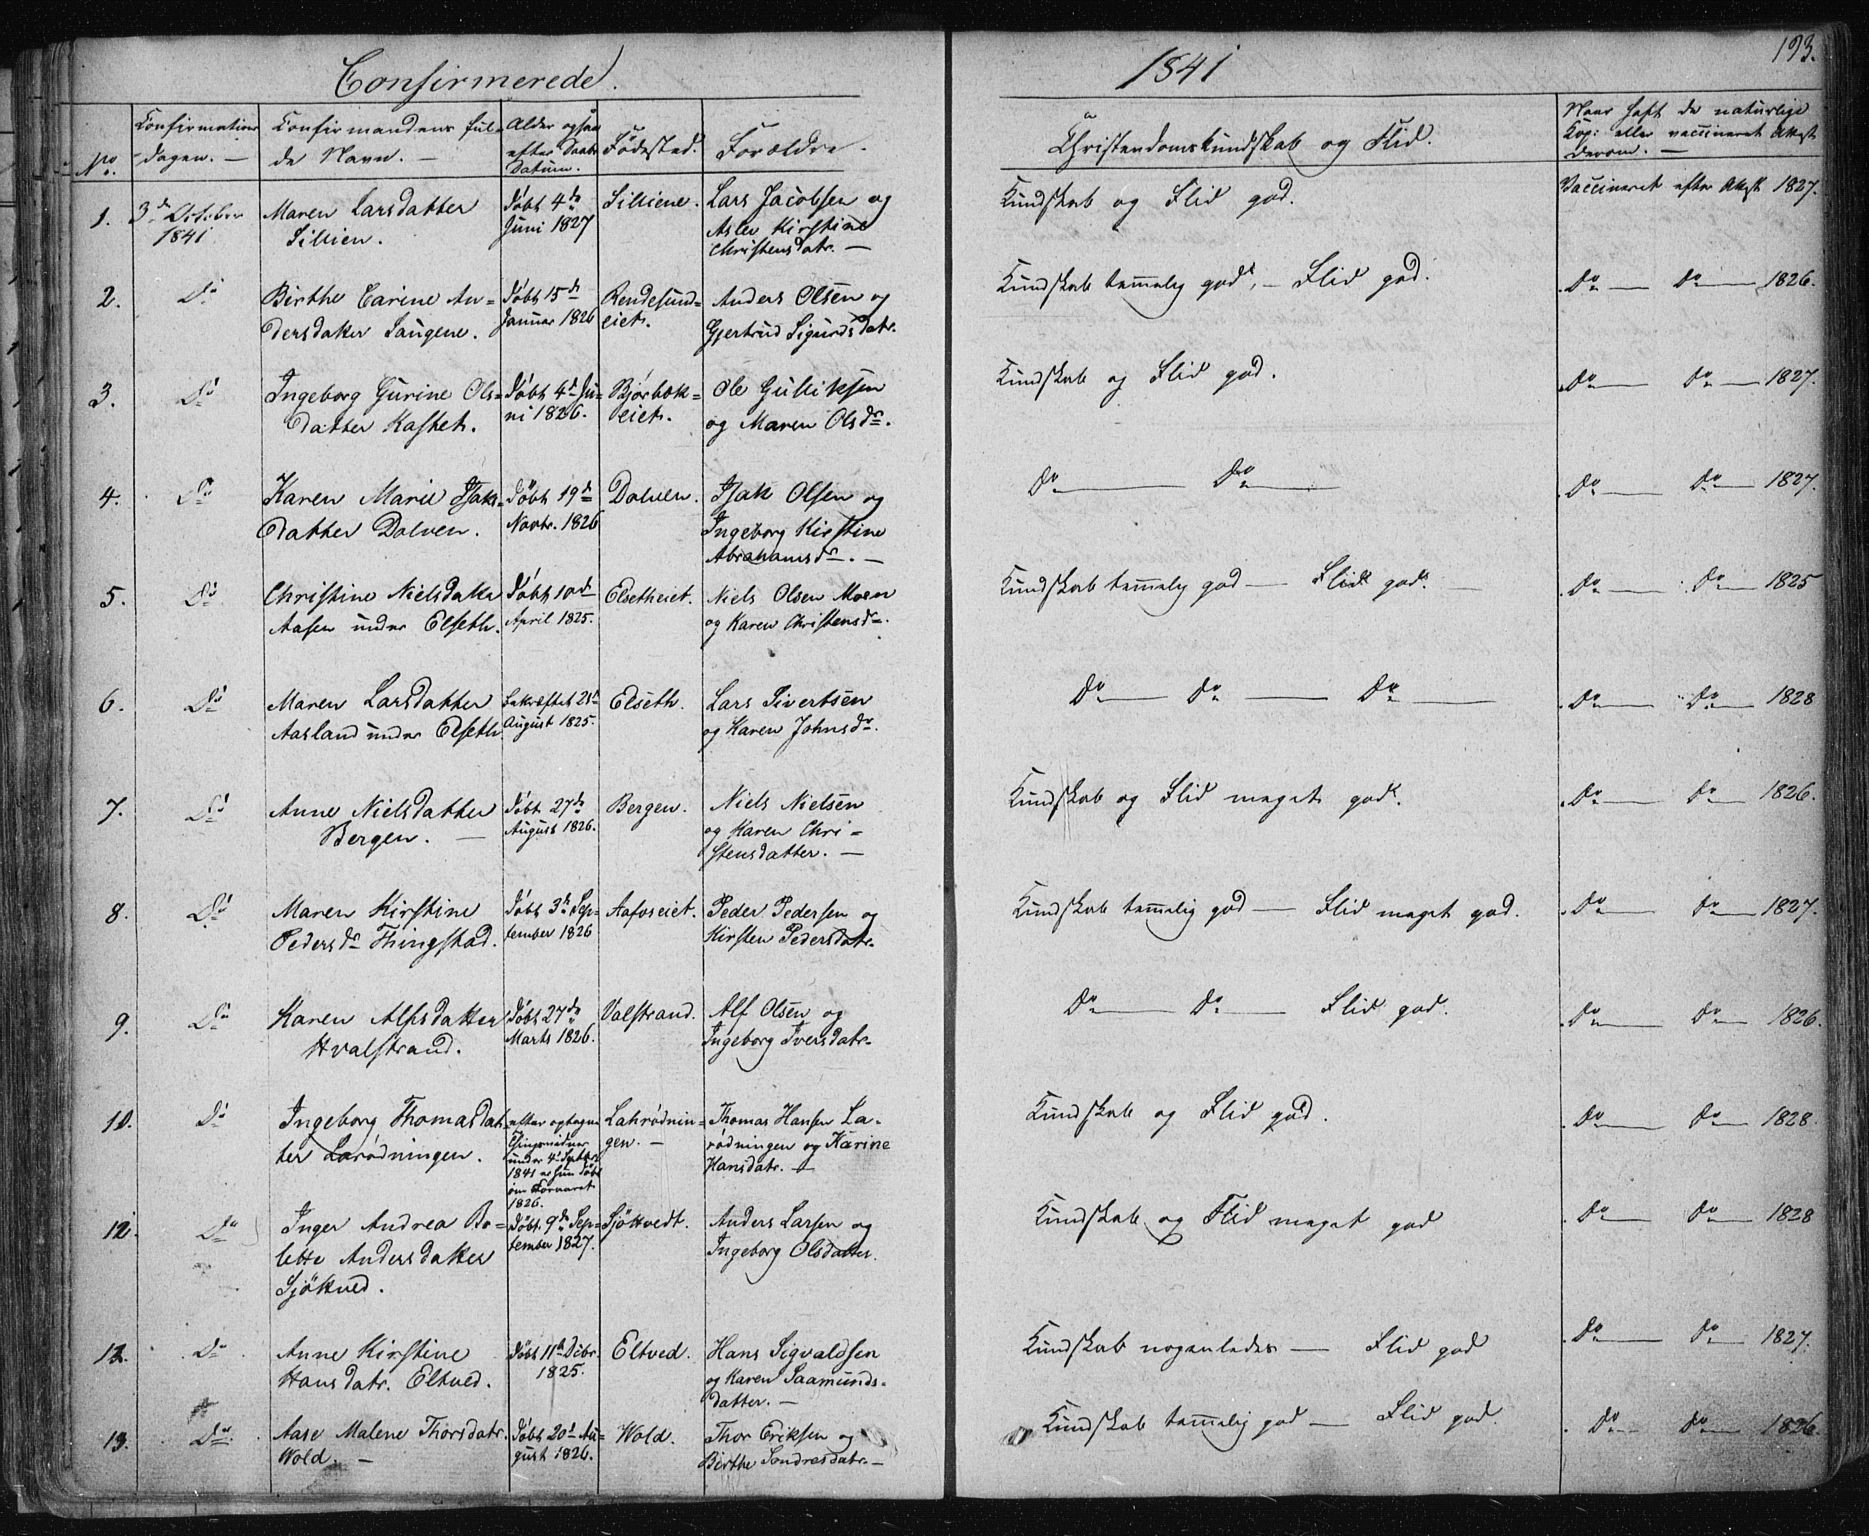 Confirmerede.
1841
193.
No.
Confirmations
dagen. —
Confirmandens ful-
de Navn. —
Alder ogsaa
efter Daabs
Datum.
Fødested.
Forældre.
Christendomskundskab og Flid.
Naar haft de naturlige
Kop: eller vaccineret Attest
derom. —
1. 3d October
1841
Maren Larsdatter
Sillien.
Døbt 4de
Juni 1827
Silliene.
Lars Jacobsen og
Kirstine
Christensdatr. —
Kundskab og Flid god.
Vaccineret efter Attest 1827.
2. Do
Birthe Carine An-
dersdatter Saugene.
Døbt 15de
Januar 1826
Rendesund-
eiet.
Anders Olsen og
Gjertrud Sigurdsdatr.
Kundskab temmelig god, — Flid god.
Do — Do — 1826.
3. Do
Ingeborg Gurine Ols-
datter Kastet.
Døbt 4d Ju-
ni 1826.
Bjørbæk-
eiet.
Ole Gulliksen
og Maren Olsdr.
Kundskab og Flid god.
Do — Do — 1827.
4. Do
Karen Marie Isak-
datter Dolven.
Døbt 19d
Novbr. 1826
Dolven.
Isak Olsen og
Ingeborg Kirstine
Abrahamsdr. —
Do — Do —
Do — Do — 1827.
5. Do
Christine Nielsdatter
Aasen under Elseth.
Døbt 10d
April 1825.
Elsetheiet.
Niels Olsen Moen
og Karen Christensdr.
Kundskab temmelig god — Flid god. —
Do — Do — 1825
6. Do
Maren Larsdatter
Aasland under Elseth
bekræftet 21d
August 1825.
Elseth.
Lars Sivertsen
og Karen Johnsdr.
Do — Do — Do —
Do — Do — 1828
7. Do
Anne Nielsdatter
Bergen. —
Døbt 27de
August 1826.
Bergen.
Niels Nielsen
og Karen Chri-
stensdatter. —
Kundskab og Flid meget god.
Do — Do — 1826.
8. Do
Maren Kirstine
Pedersdr Thingstad.
Døbt 3d Sep-
tember 1826
Aafoseiet.
Peder Pedersen og
Kirsten Pedersdatr.
Kundskab temmelig god — Flid meget god.
Do — Do — 1827.
9. Do
Karen Alfsdatter
Hvalstrand.
Døbt 27de
Marts 1826.
Valstrand.
Alf Olsen og
Ingeborg Iversdatr.
Do — Do — Flid god.
Do — Do — 1826.
10. Do
Ingeborg Thomasdat-
ter Larødningen.
efter optagne
Thingsvidner
under 4d Septbr.
1841 er hun døbt
om Foraaret
1826.
Lahrødnin-
gen. —
Thomas Hansen La-
rødningen og Karine
Hansdatr. —
Kundskab og Flid god.
Do — Do — 1828.
12. Do
Inger Andrea Bo-
lette Andersdatter
Sjökved.
Døbt 9d Sep-
tember 1827.
Sjökvedt.
Anders Larsen og
Ingeborg Olsdatter.
Kundskab og Flid meget god
Do — Do — 1828
12. Do
Anne Kirstine
Hansdatr. Eltved.
Døbt 11d Decbr.
1825.
Eltved.
Hans Sigvaldsen
og Karen Saamunds-
datter. —
Kundskab nogenledes — Flid god
Do — Do — 1827.
13. Do
Aase Malene Thorsdatr.
Wold. —
Døbt 20d Au-
gust 1826.
Wold.
Thor Eriksen og
Birthe Sondresdatr. —
Kundskab temmelig god — Flid god.
Do — Do — 1826.